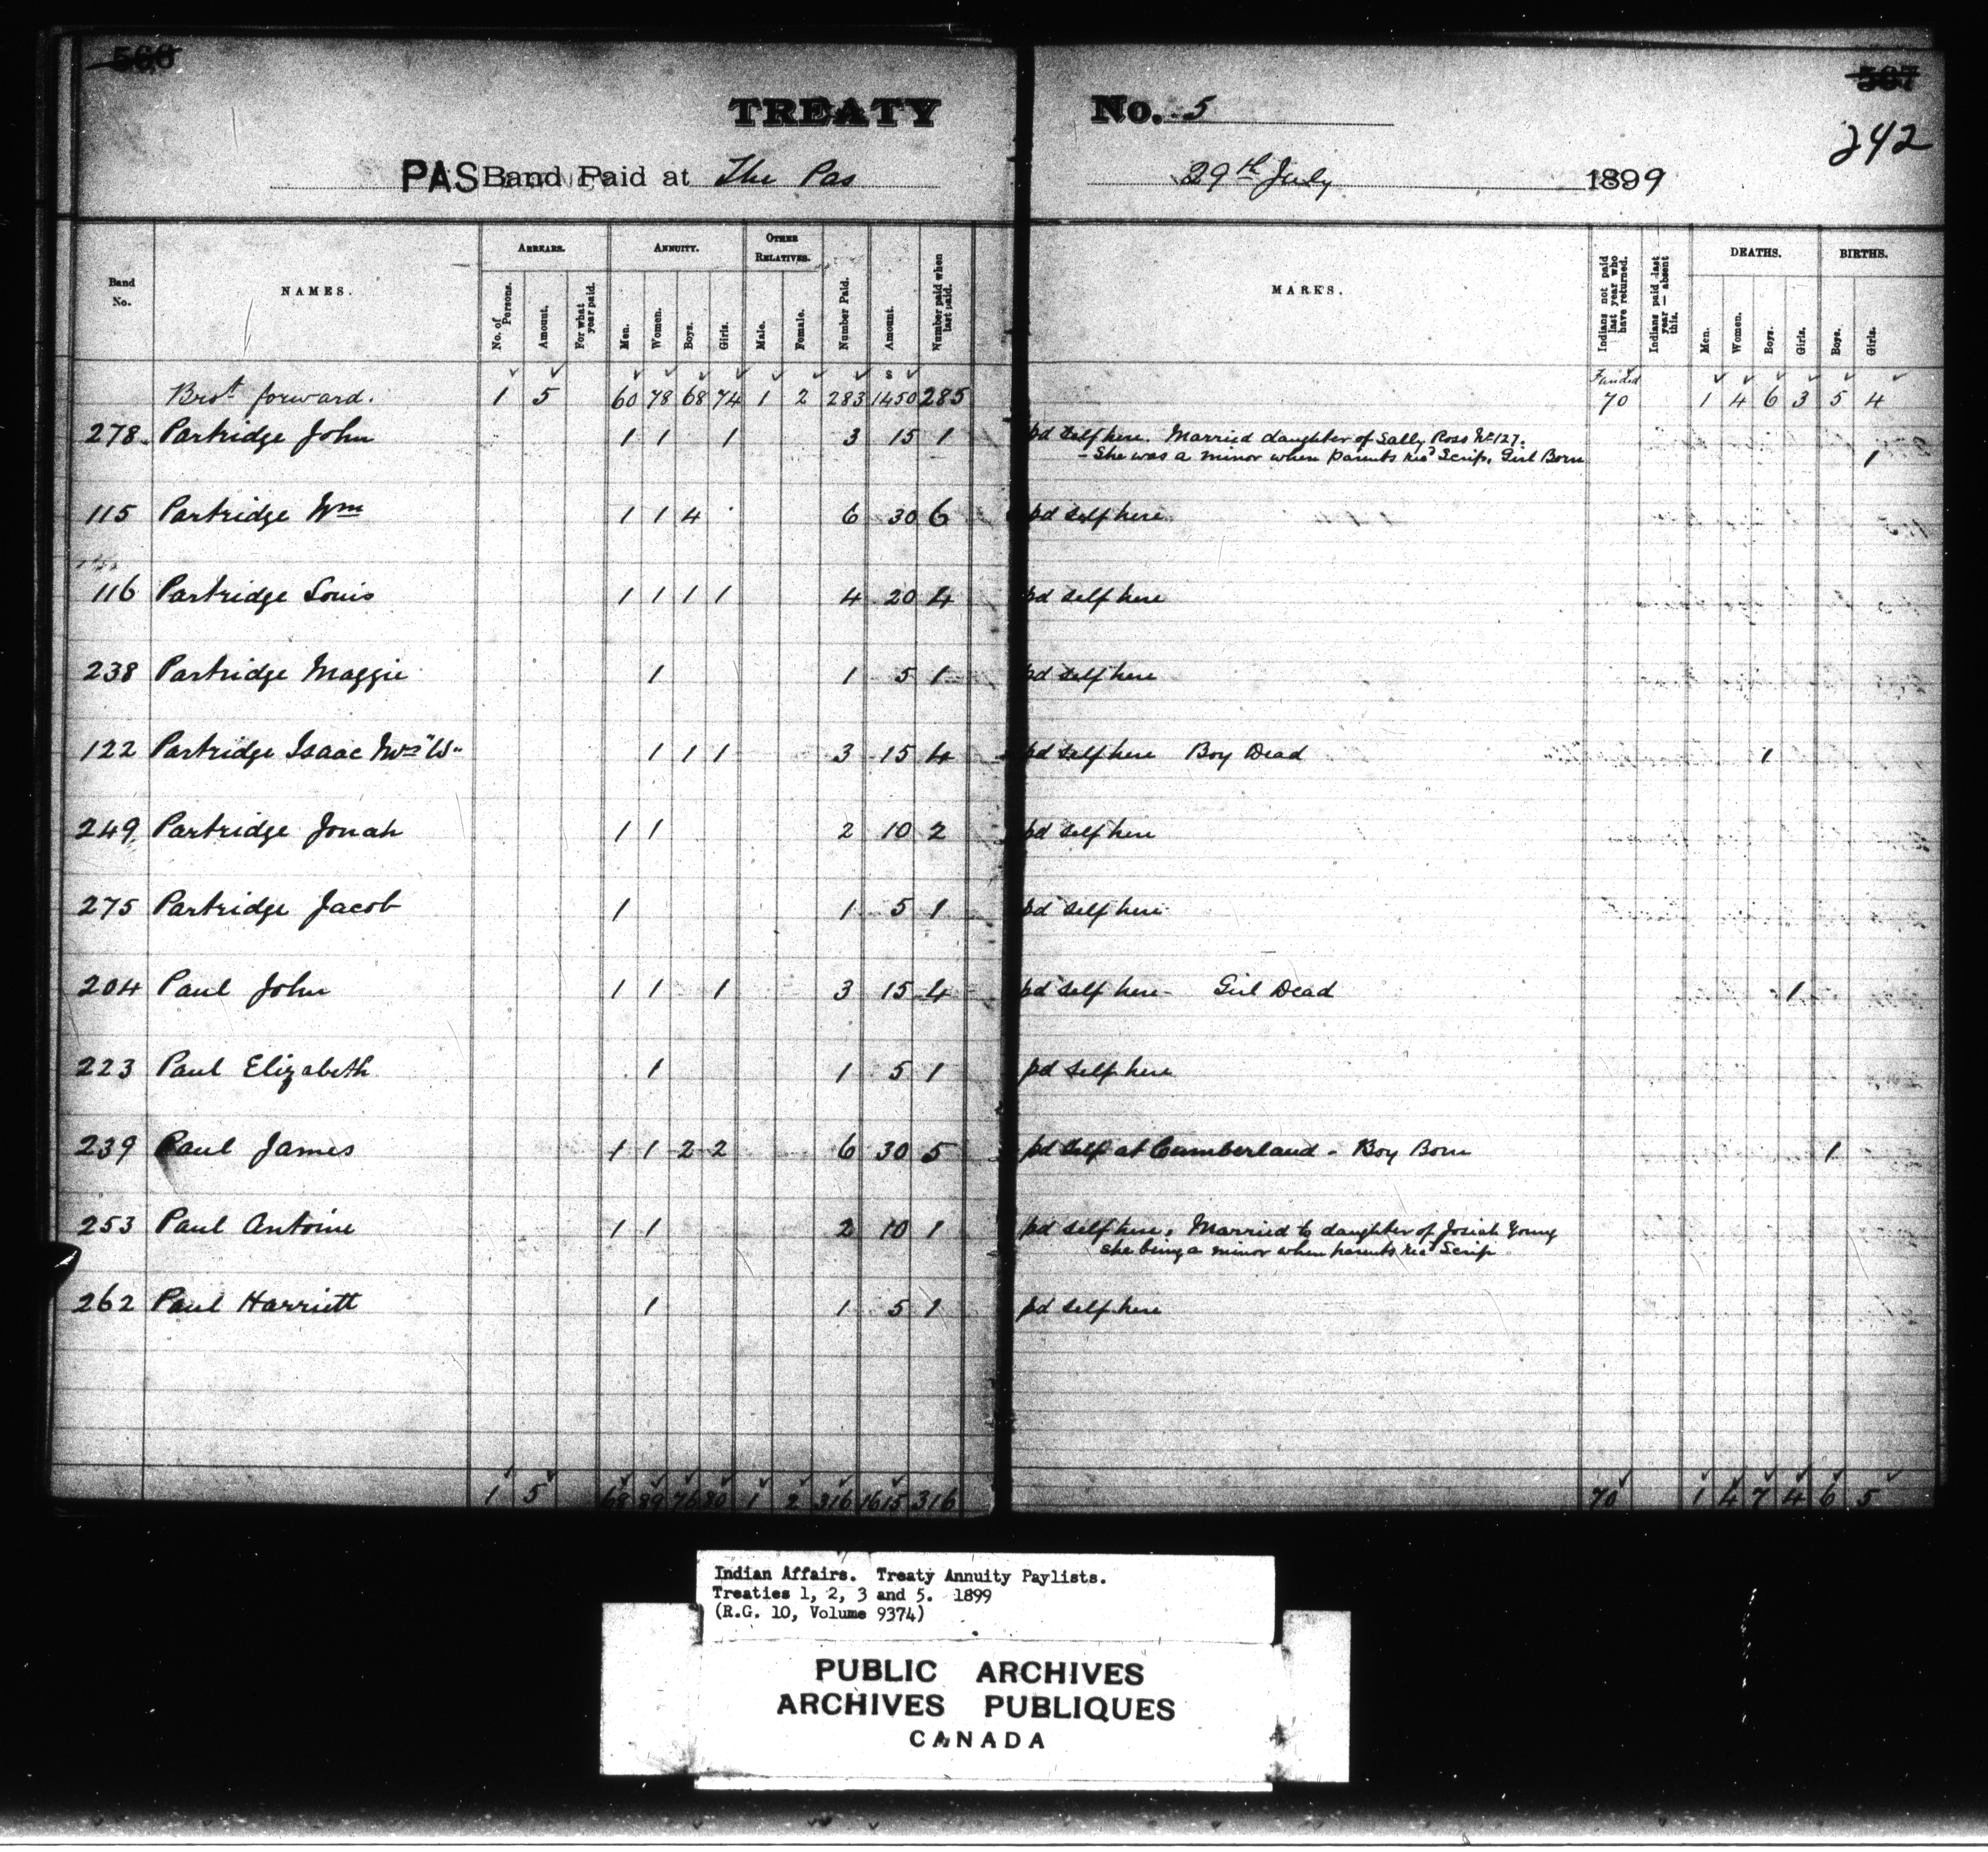 566 567
TREATY No. 5
242
PAS Band Paid at The Pas 29th July 1899
Band No. NAMES. ARREARS. ANNUITY. OTHER RELATIVES. Number Paid. Amount. Number paid when last paid. MARKS. Indians not paid last year who have returned. Indians paid last year — absent this. DEATHS. BIRTHS.
No. of Persons. Amount. For what year paid. Men. Women. Boys. Girls. Male. Female. Men. Women. Boys. Girls. Boys. Girls.
Brot forward. 1 5 60 78 68 74 1 2 283 $ 1450 285 Funded 70 1 4 6 3 5 4
278 Partridge John 1 1 1 3 15 1 pd self here. Married daughter of Sally Ross No 127.
- She was a minor when parents recd Scrip. Girl Born 1
115 Partridge Wm 1 1 4 6 30 6 pd self here
116 Partridge Louis 1 1 1 1 4 20 4 pd self here
238 Partridge Maggie 1 1 5 1 pd self here
122 Partridge Isaac Mrs "W" 1 1 1 3 15 4 pd self here Boy Dead 1
249 Partridge Jonah 1 1 2 10 2 pd self here
275 Partridge Jacob 1 1 5 1 pd self here
204 Paul John 1 1 1 3 15 4 pd self here - Girl Dead 1
223 Paul Elizabeth 1 1 5 1 pd self here
239 Paul James 1 1 2 2 6 30 5 pd self at Cumberland - Boy Born 1
253 Paul Antoine 1 1 2 10 1 pd self here, Married to daughter of Josiah Young
she being a minor when parents recd Scrip
262 Paul Harriett 1 1 5 1 pd self here
1 5 68 89 76 80 1 2 316 1615 316 70 1 4 7 4 6 5
Indian Affairs. Treaty Annuity Paylists.
Treaties 1, 2, 3 and 5. 1899
(R.G. 10, Volume 9374)
PUBLIC ARCHIVES
ARCHIVES PUBLIQUES
CANADA